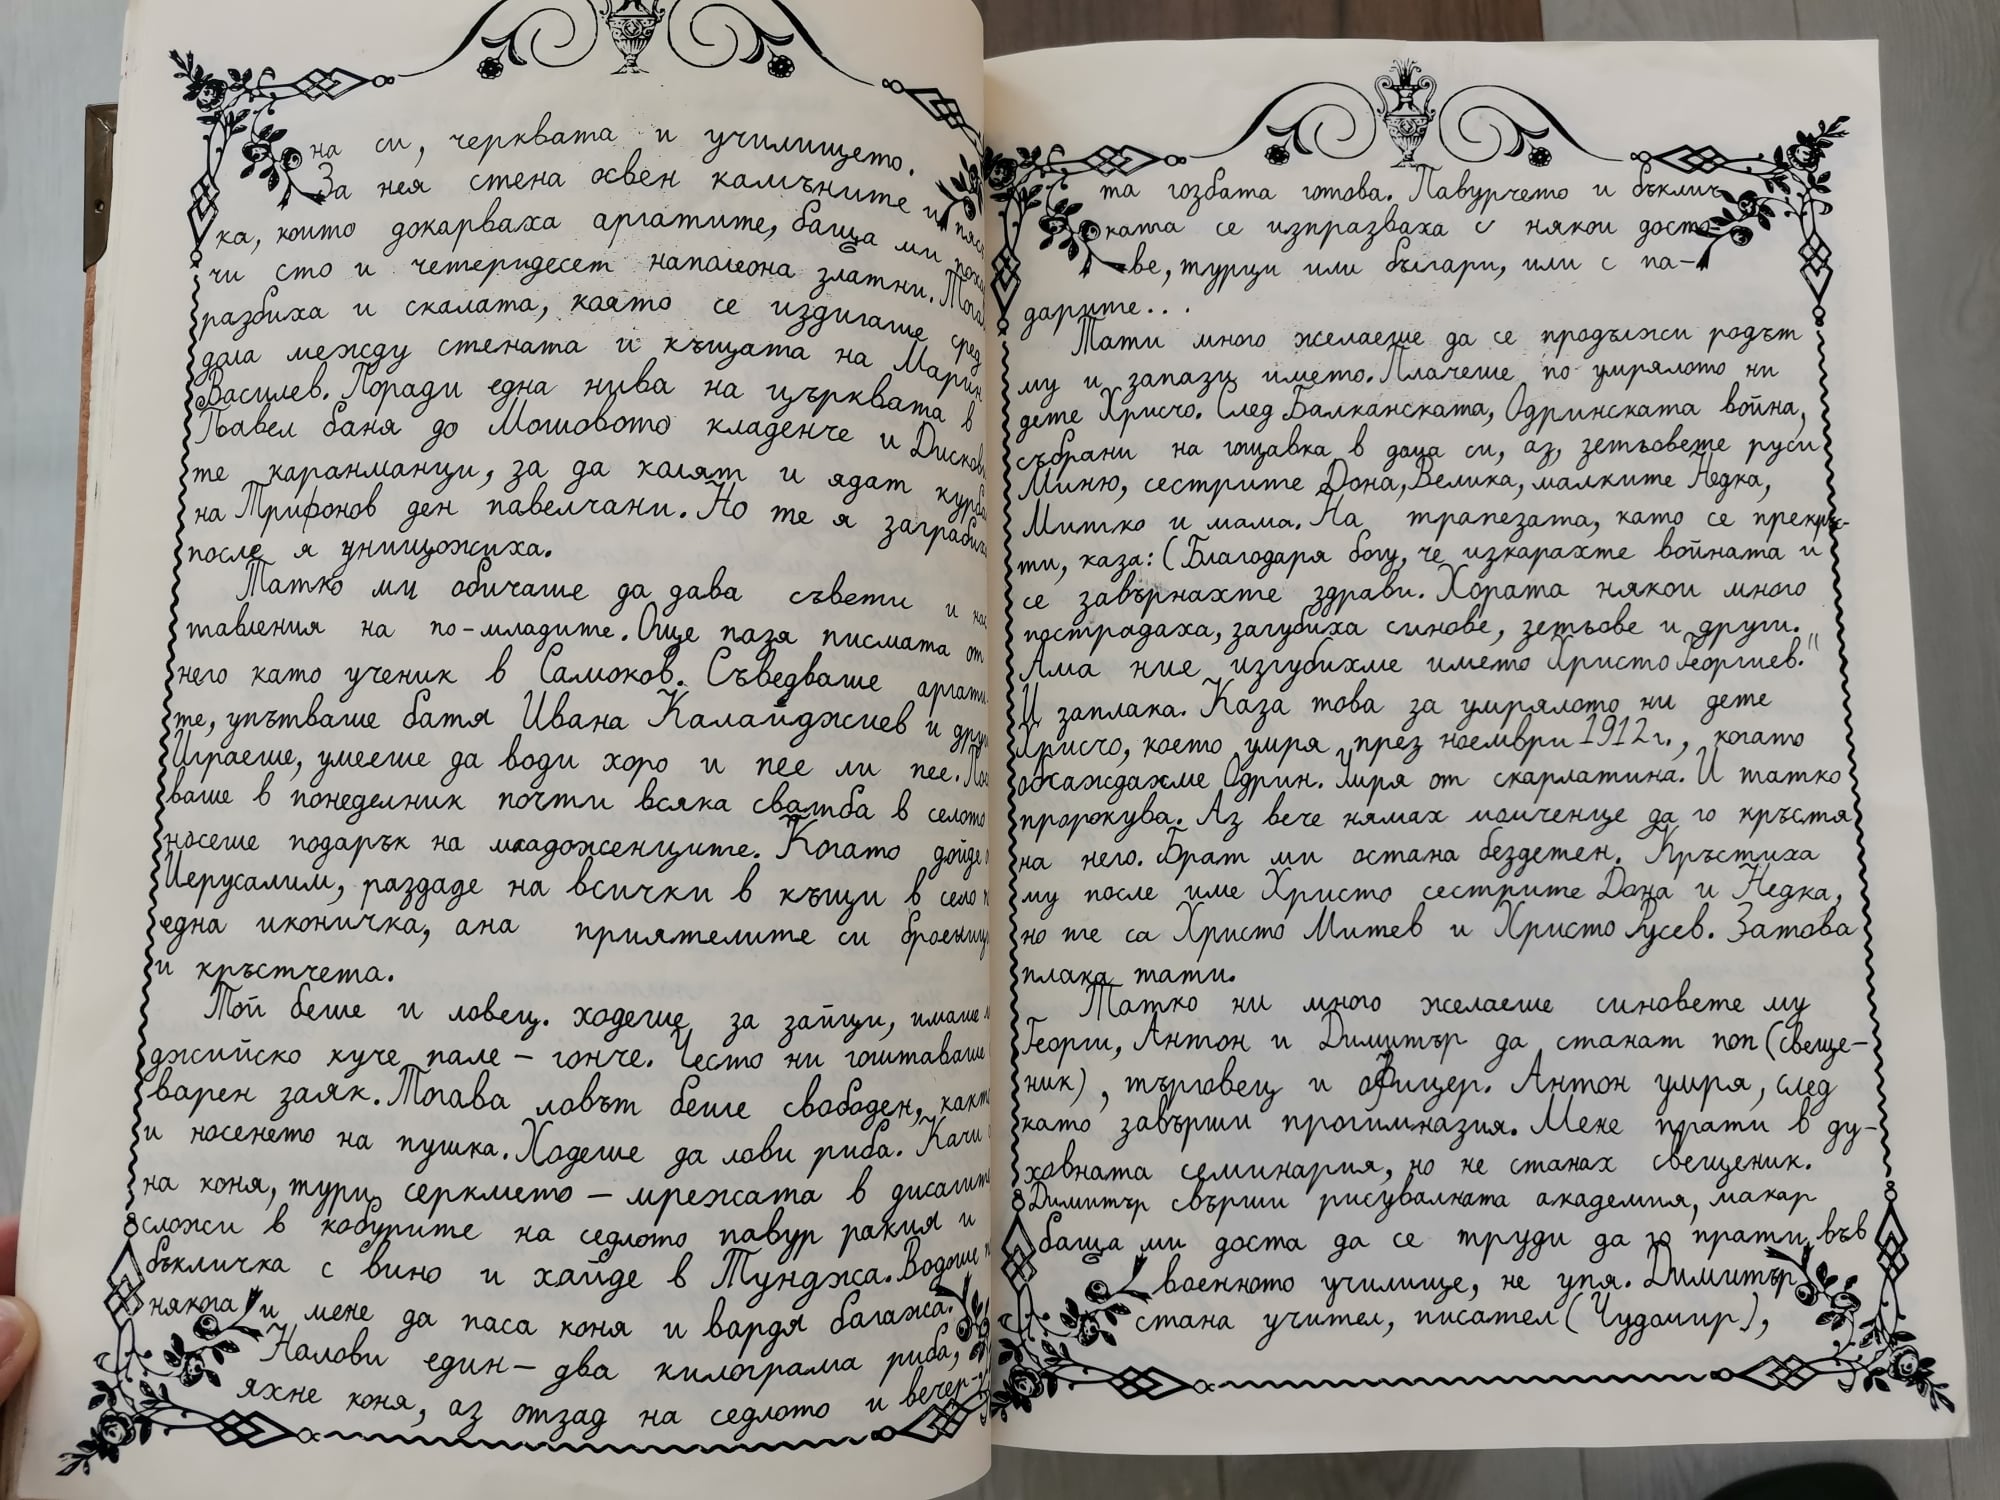 на си, черквата и училището.
За нея стена освен камъните и
ка, които докарваха аргатите, баща ми
чи сто и четеридесет наполеона златни.
разбиха и скалата, която се издигаше сред
дола между стената и къщата на Марин
Василев. Поради една нива на църквата в
Павел баня до Мошовото кладенче и
те каранманци, за да колят и ядат
на Трифонов ден павелчани. Но те я
после я унищожиха.
Татко ми обичаше да дава съвети и
тавления на по-младите. Още пазя писмата от
него като ученик в Самоков. Съведваше
те, упътваше батя Ивана Калайджиев и
Играеше, умееше да води хоро и пее ли пее.
ваше в понеделник почти всяка сватба в селото
носеше подарък на младоженците. Когато дойде
Иерусалим, раздаде на всички в къщи в село
една иконичка, ана приятелите си
и кръстчета.
Той беше и ловец. ходеше за зайци, имаше
джийско куче пале - гонче. Често ни гоштаваше
варен заяк. Тогава ловът беше свободен,
и носенето на пушка. Ходеше да лови риба. Качи
на коня, тури серкмето - мрежата в
сложи в кобурите на седлото павур ракия и
бъкличка с вино и хайде в Тунджа. Водеше
някога и мене да паса коня и вардя багажа.
Налови един - два килограма риба,
яхне коня, аз отзад на седлото и вечер-
та гозбата готова. Павурчето и бъклич-
ката се изпразваха с някои досто-
ве, турци или българи, или с па-
дарите...
Тати много желаеше да се продължи родът
му и запази името. Плачеше по умрялото ни
дете Христо. След Балканската, Одринската война,
събрани на гощавка в доца си, аз, зетьовете руси
Миню, сестрите Дона, Велика, малките Недка,
Митко и мама. На трапезата, като се прекръс-
ти, каза: (Благодаря богу, че изкарахте войната и
се завърнахте здрави. Хората някои много
пострадаха, загубиха синове, зетьове и други.
Ама ние изгубихме името Христо Георгиев."
И заплака. Каза това за умрялото ни дете
Христо, което умря през ноември 1912 г., когато
обхаждахме Одрин. Умря от скарлатина. И татко
пророкува. Аз вече нямах момченце да го кръстя
на него. Брат ми остана бездетен. Кръстиха
му после име Христо сестрите Дона и Недка,
но те са Христо Митев и Христо Русев. Затова
плака тати.
Татко ни много желаеше синовете му
Георги, Антон и Димитър да станат поп (свеще-
ник), търговец и офицер. Антон умря, след
като завърши прогимназия. Мене прати в ду-
ховната семинария, но не станах свещеник.
Димитър свърши рисувалната академия, макар
баща ми доста да се труди да го прати във
военното училище, не упя. Димитър
стана учител, писател (Чудомир),